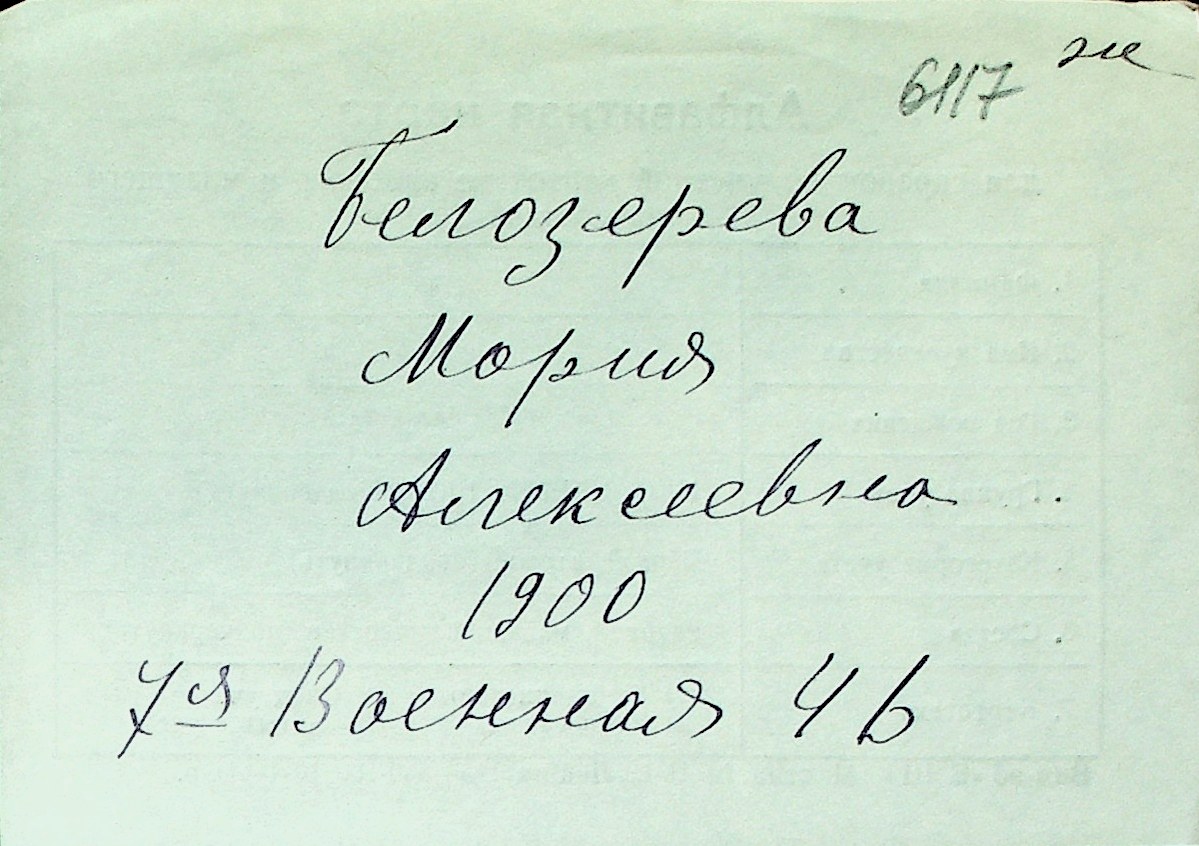 6117 ж
Белозерева
Мария
Алексеевна
1900
7я Военная 4 Б